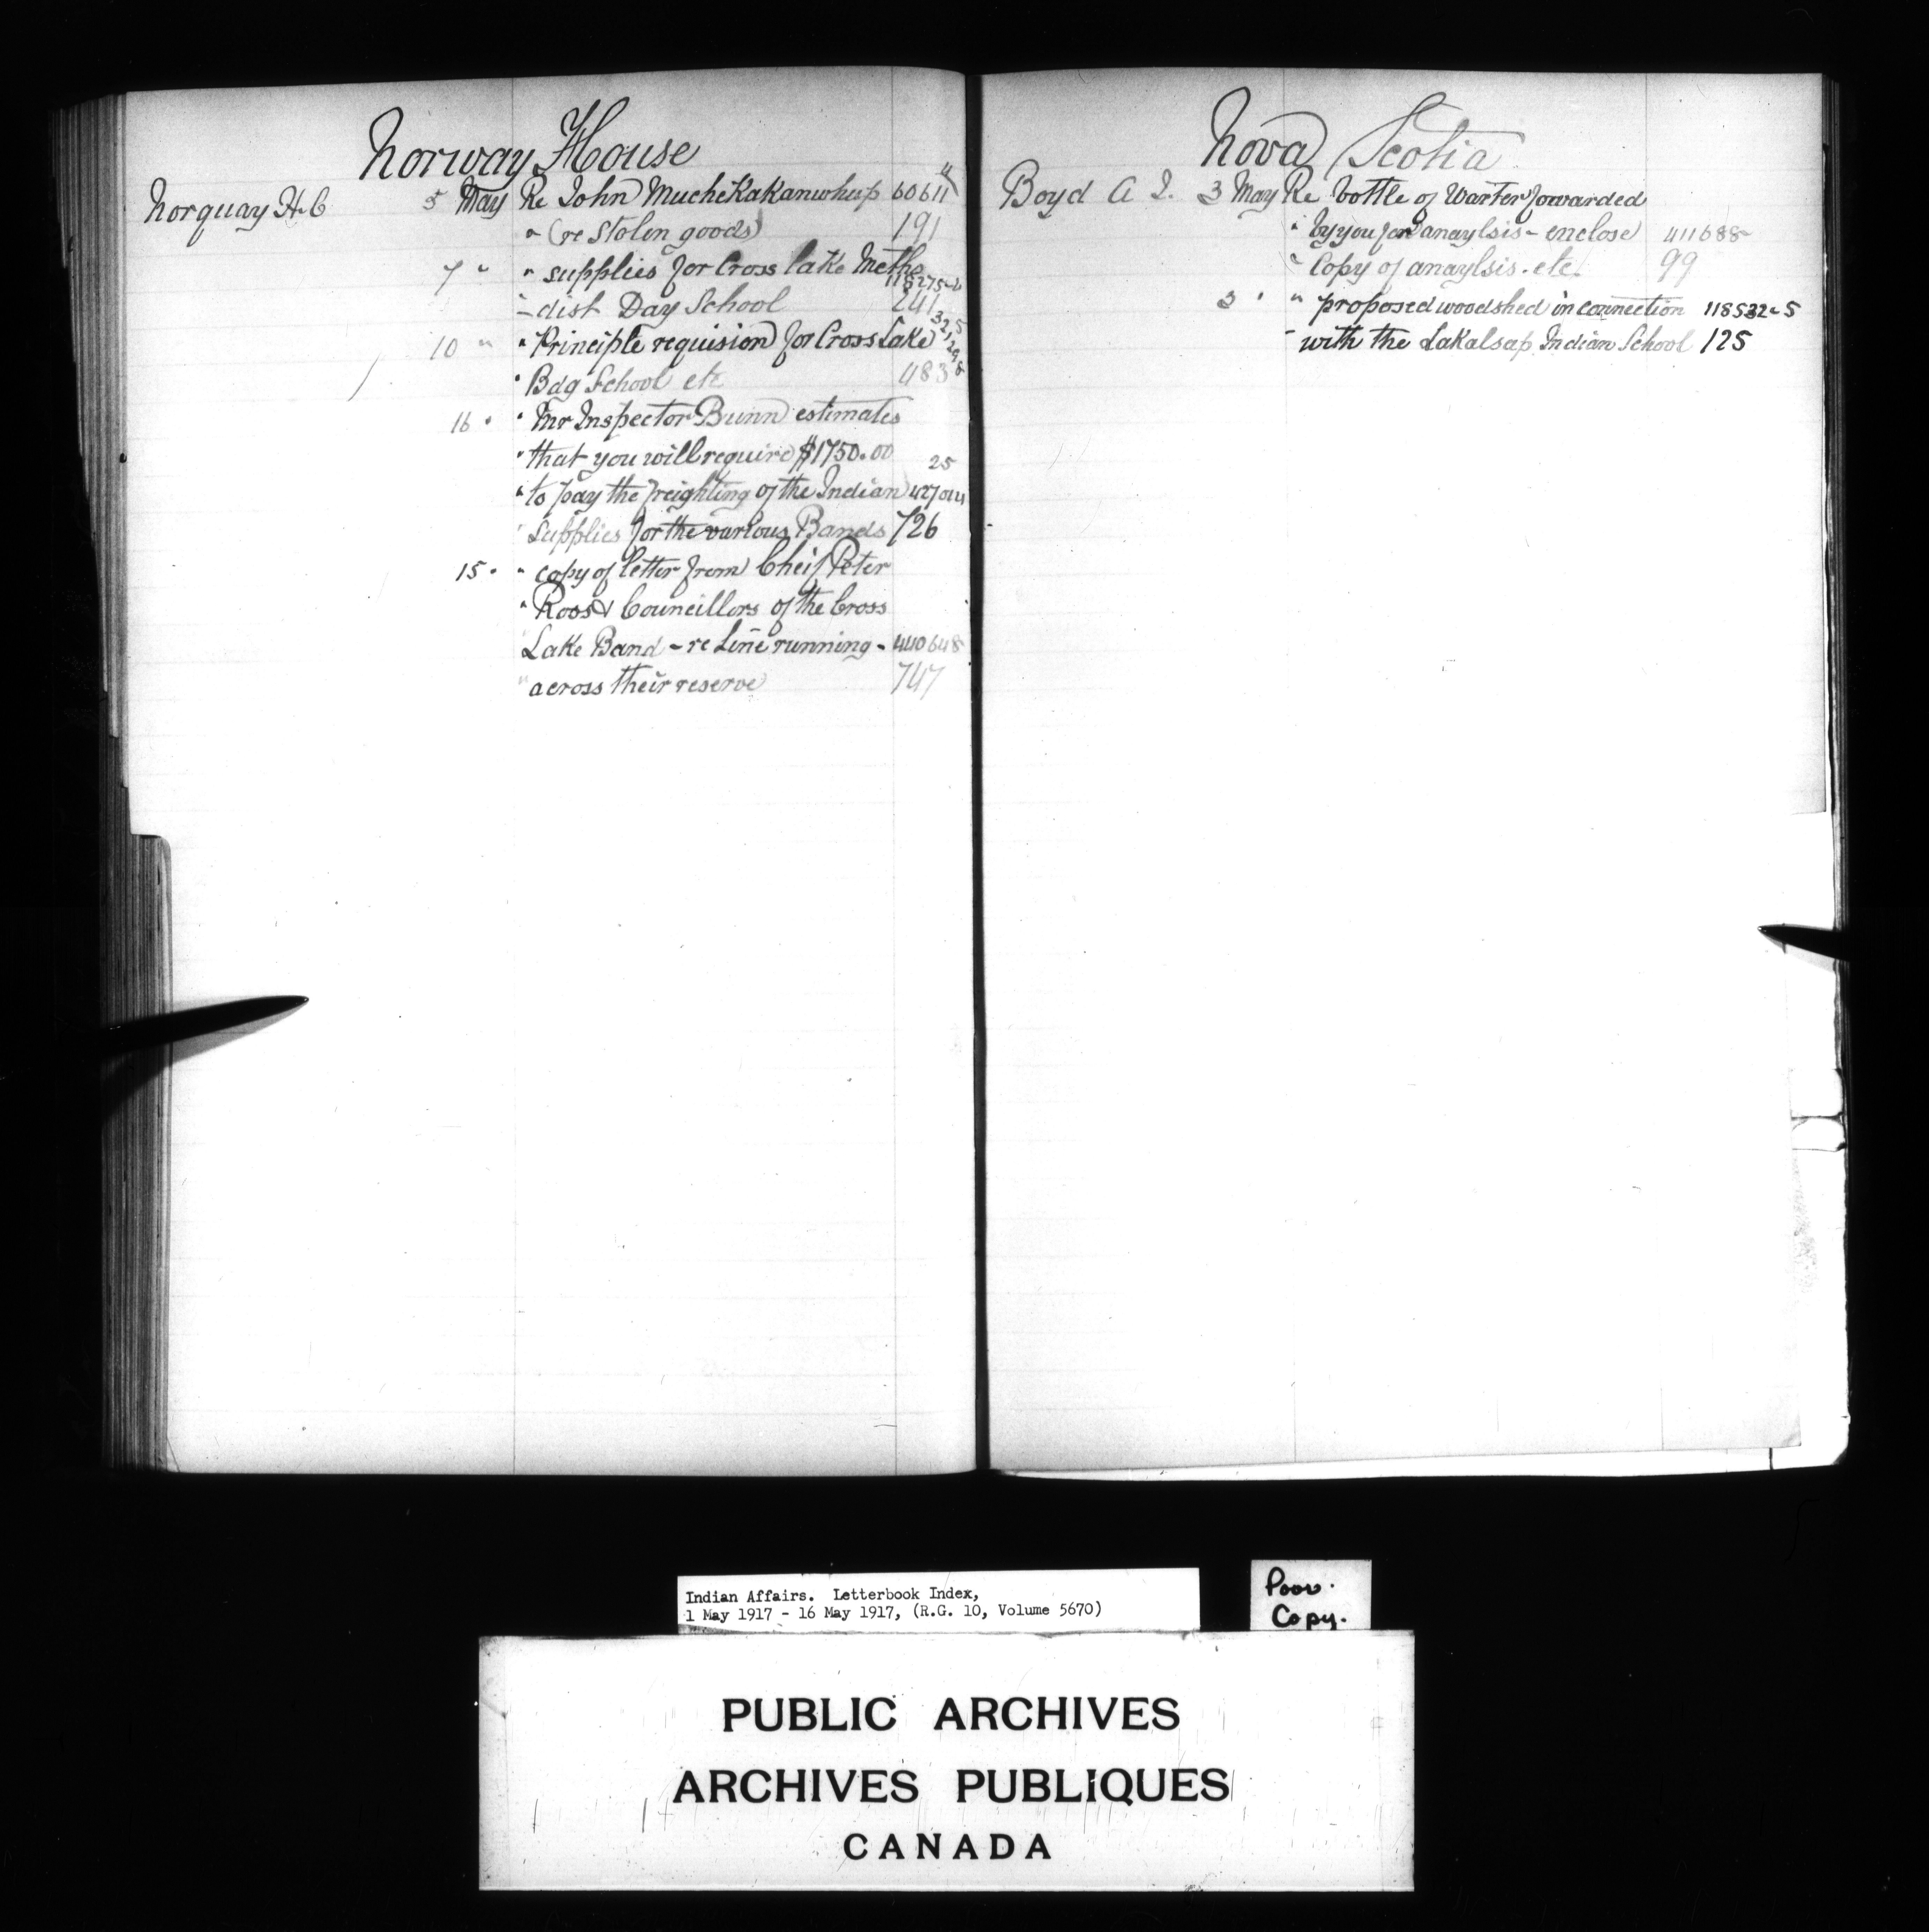 Norway House
Norquay H.C 5 May Re John Muchekakanwhup 60611
" (re stolen goods) 191
7 " " supplies for Cross Lake Metho
118275-2
- dist Day School 241
10 " " Principle requision for Cross Lake
" Bdg School etc 483
16 " " Mr Inspector Bunn estimates
" that you will require $1750.00
25
" to pay the freighting of the Indian 427014
" Supplies for the various Bands 726
15 " " copy of letter from Cheif Peter
" Ross & Councillors of the Cross
" Lake Band - re Line running - 440648
" across their reserve 747
Nova Scotia
Boyd A J. 3 May Re bottle of Warter forwarded
" by you for anaylsis - enclose 411688
" Copy of anaylsis. etc. 99
3 " " proposed woodshed in connection 118532-5
" with the Lakalsap Indian School 125
Indian Affairs. Letterbook Index,
1 May 1917 - 16 May 1917, (R.G. 10, Volume 5670)
Poor.
Copy.
PUBLIC ARCHIVES
ARCHIVES PUBLIQUES
CANADA